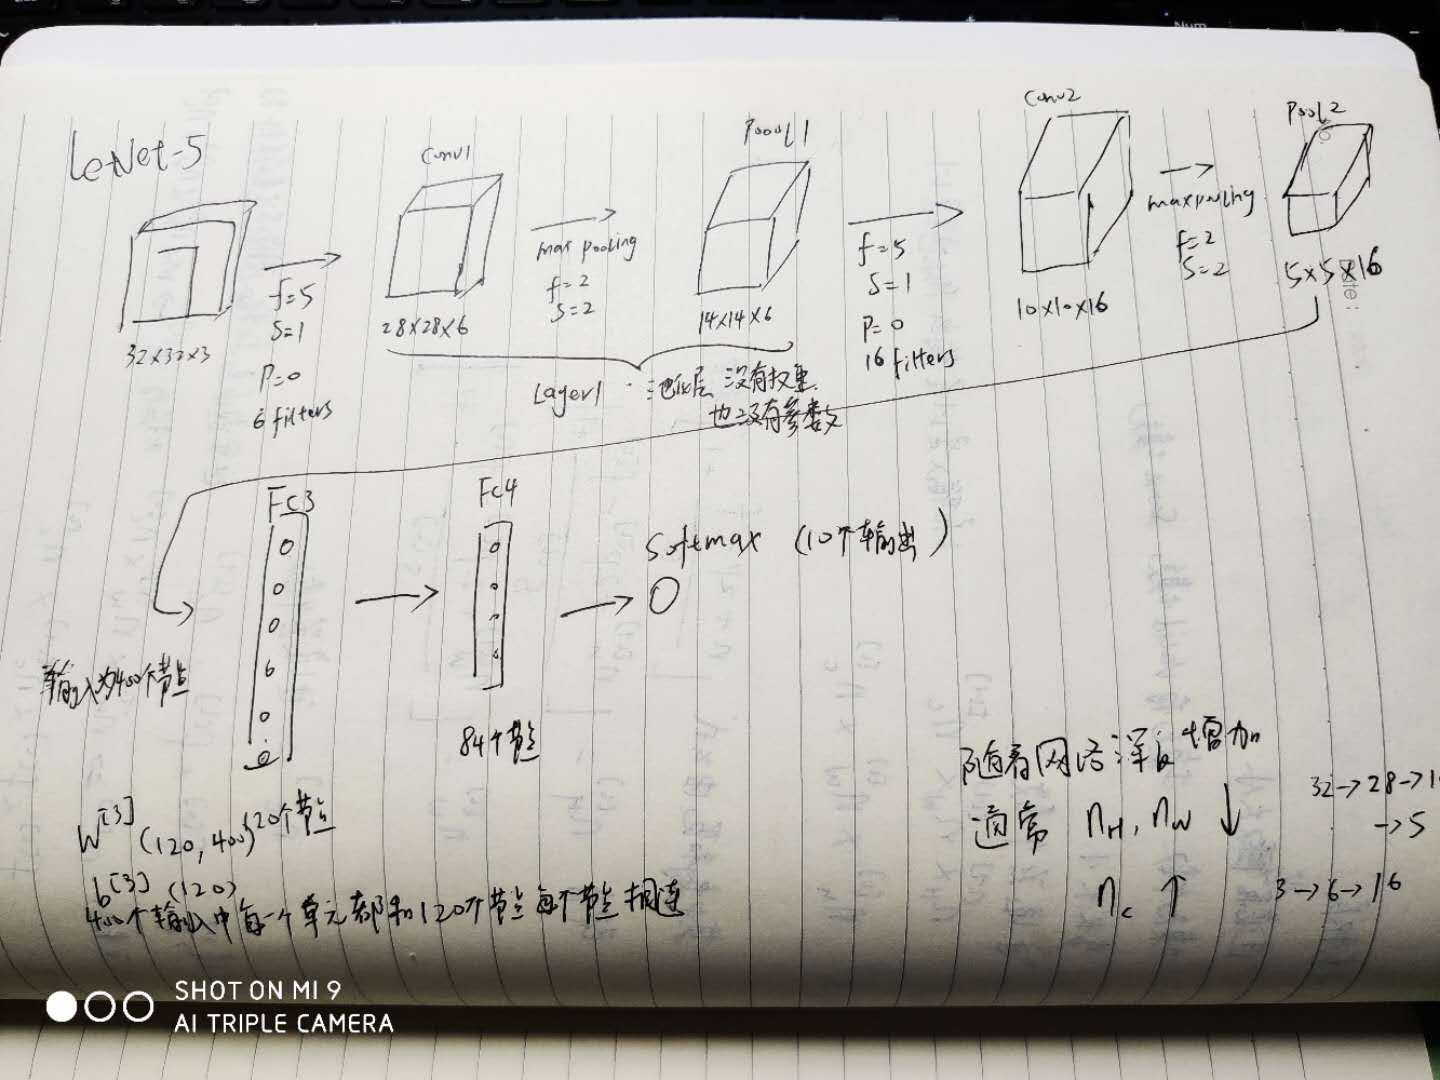 LeNet-5
32×32×3
f=5
s=1
p=0
6 filters
Conv1
28×28×6
max pooling
f=2
s=2
Poool1
14×14×6
Layer1
池化层 没有权重
也没有参数
f=5
s=1
p=0
16 filters
Conv2
10×10×16
maxpooling
f=2
s=2
Pool2
5×5×16
FC3
FC4
Softmax (10个输出)
输入为400个节点
84个节点
120个节点
W[3] (120,400)
b[3] (120)
400个输入中每一个单元都和120个节点每个节点相连
随着网络深度增加
通常 nH, nW ↓
nc ↑
32→28→1
→5
3→6→16
Num
SHOT ON MI 9
AI TRIPLE CAMERA